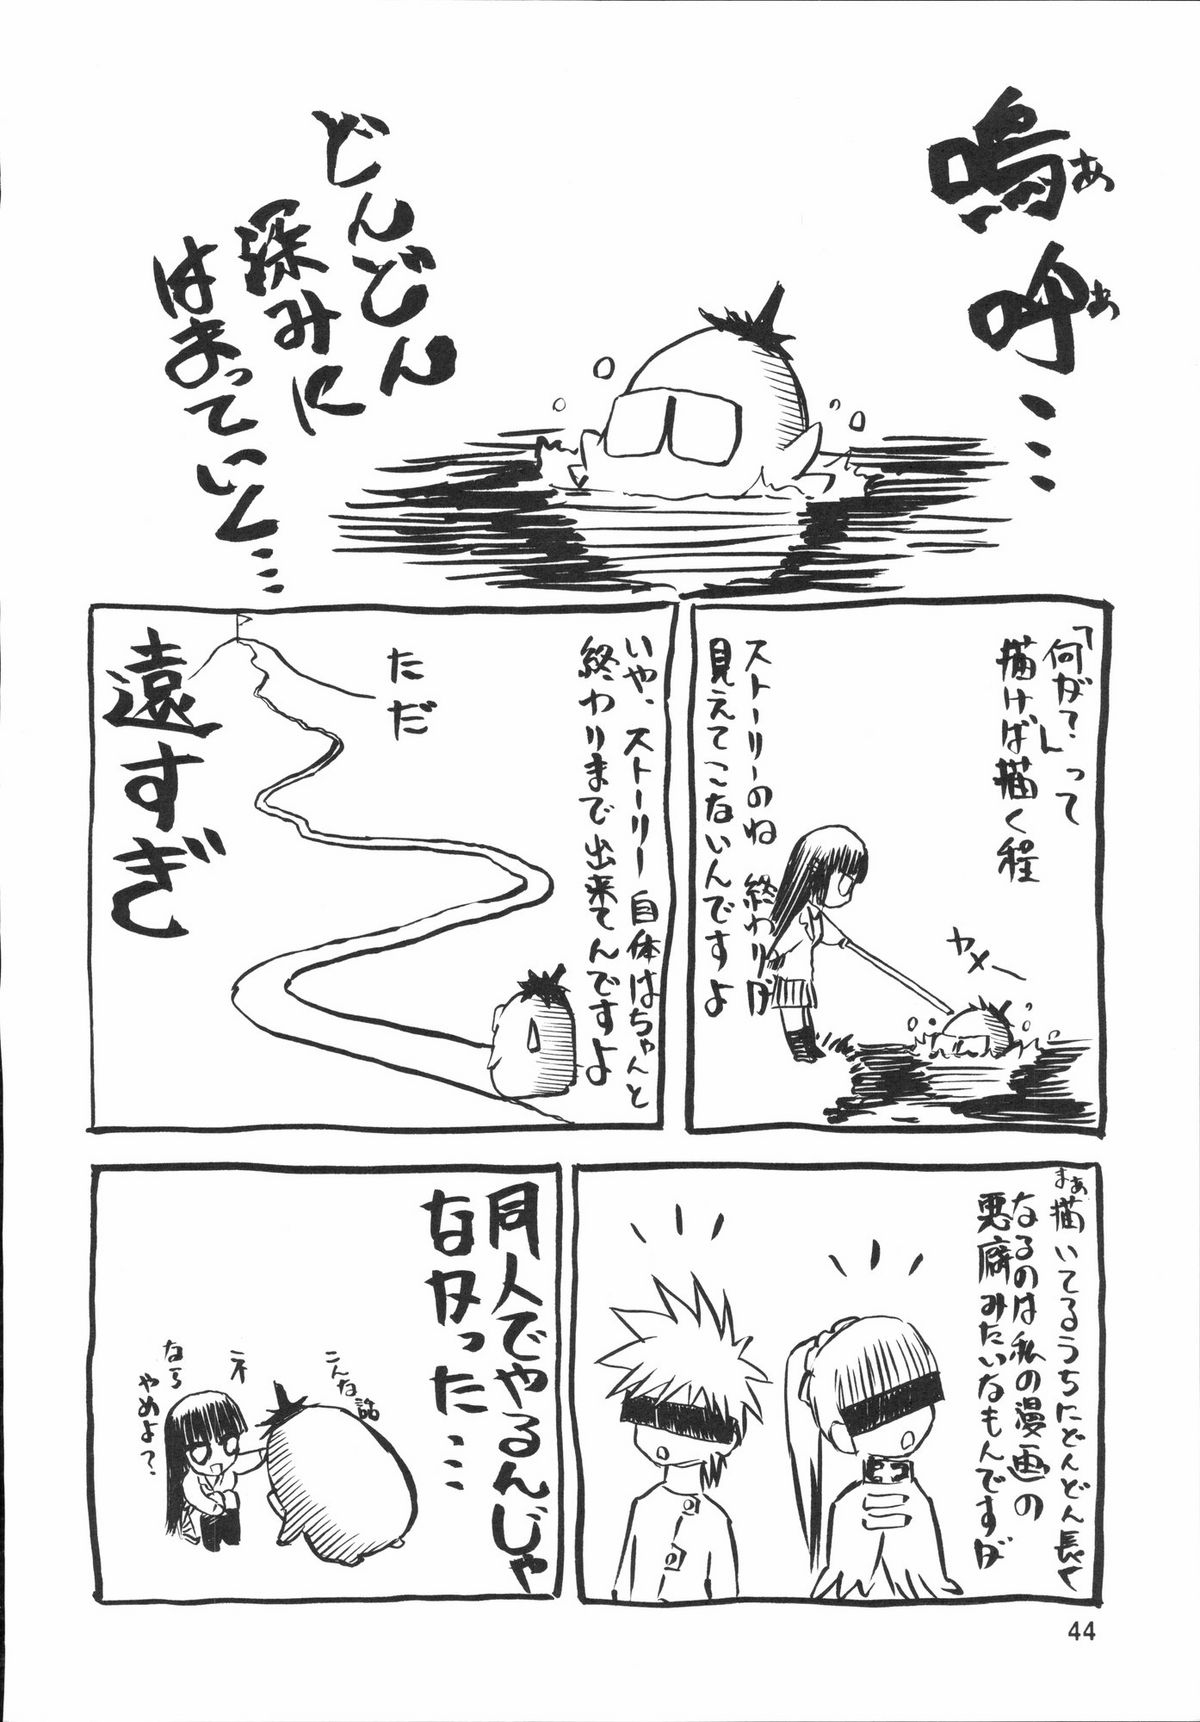 嗚呼……
ああ
どんどん
深みに
はまっていく……
「何が?」って
描けば描く程
ストーリーのね 終わりが
見えてこないんですよ
ヤメー
いや、ストーリー自体はちゃんと
終わりまで出来てんですよ
ただ
遠すぎ
まぁ描いてるうちにどんどん長く
なるのは私の漫画の
悪癖みたいなもんですが
同人でやるんじゃ
なかった……
こんな話
ネ
なら
やめよ?
44